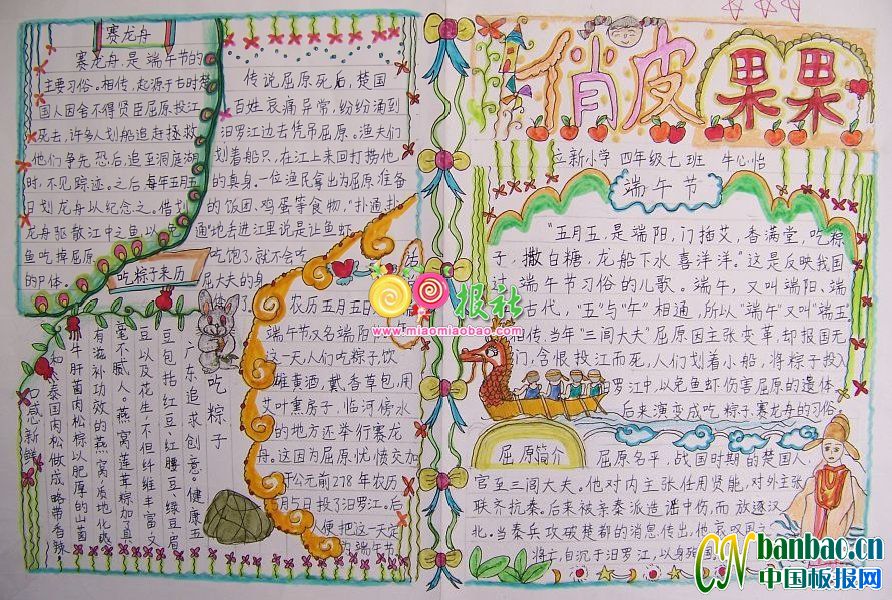 俏皮果果
立新小学 四年级七班 牛心怡
端午节
"五月五,是端阳,门插艾,香满堂,吃粽
子,撒白糖,龙船下水喜洋洋。"这是反映我国
端午节习俗的儿歌。端午,又叫端阳、端
古代,"五"与"午"相通,所以"端午"又叫"端五
相传,当年"三闾大夫"屈原因主张变革,却报国无
门,含恨投江而死,人们划着小船,将粽子投入
汨罗江中,以免鱼虾伤害屈原的遗体,
后来演变成吃粽子、赛龙舟的习俗。
屈原简介
屈原名平,战国时期的楚国人,
官至三闾大夫。他对内主张任用贤能,对外主张
联齐抗秦。后来被亲秦派造谣中伤,而放逐汉
北。当秦兵攻破楚都的消息传出,他哀叹国之
将亡,自沉于汨罗江,以身
赛龙舟
赛龙舟是端午节的
主要习俗。相传,起源于古时楚
国人因舍不得贤臣屈原投江
死去,许多人划船追赶拯救。
他们争先恐后追至洞庭湖
时,不见踪迹。之后每年五月五
日划龙舟以纪念之。借划
龙舟驱散江中之鱼,以免
鱼吃掉屈原
的尸体。
传说屈原死后,楚国
百姓哀痛异常,纷纷涌到
汨罗江边去凭吊屈原。渔夫们
划着船只,在江上来回打捞他
的真身。一位渔民拿出为屈原准备
的饭团、鸡蛋等食物,"扑通、扑
通"地丢进江里,说是让鱼虾
吃饱了,就不会吃
屈大夫的身
体了。
吃粽子来历
农历五月五日
端午节,又名端阳
这一天,人们吃粽子,饮
雄黄酒,戴香草包,用
艾叶熏房子,临河傍水
的地方还举行赛龙
舟。这因为屈原忧愤交加
于公元前278年农历
月5日投了汨罗江。后
人便把这一天定
为端午节。
吃粽子
广东追求创意。健康五
豆包括红豆、红腰豆、绿豆、眉
豆以及花生,不但纤维丰富,又
毫不腻人。燕窝莲蓉粽加了具
有滋补功效的燕窝,质地化
牛肝菌肉松粽以肥厚的山菌
和泰国肉松做成,略带香辣,
口感新鲜
报社
www.miaomiaobao.com
CN banbao.cn
中国板报网